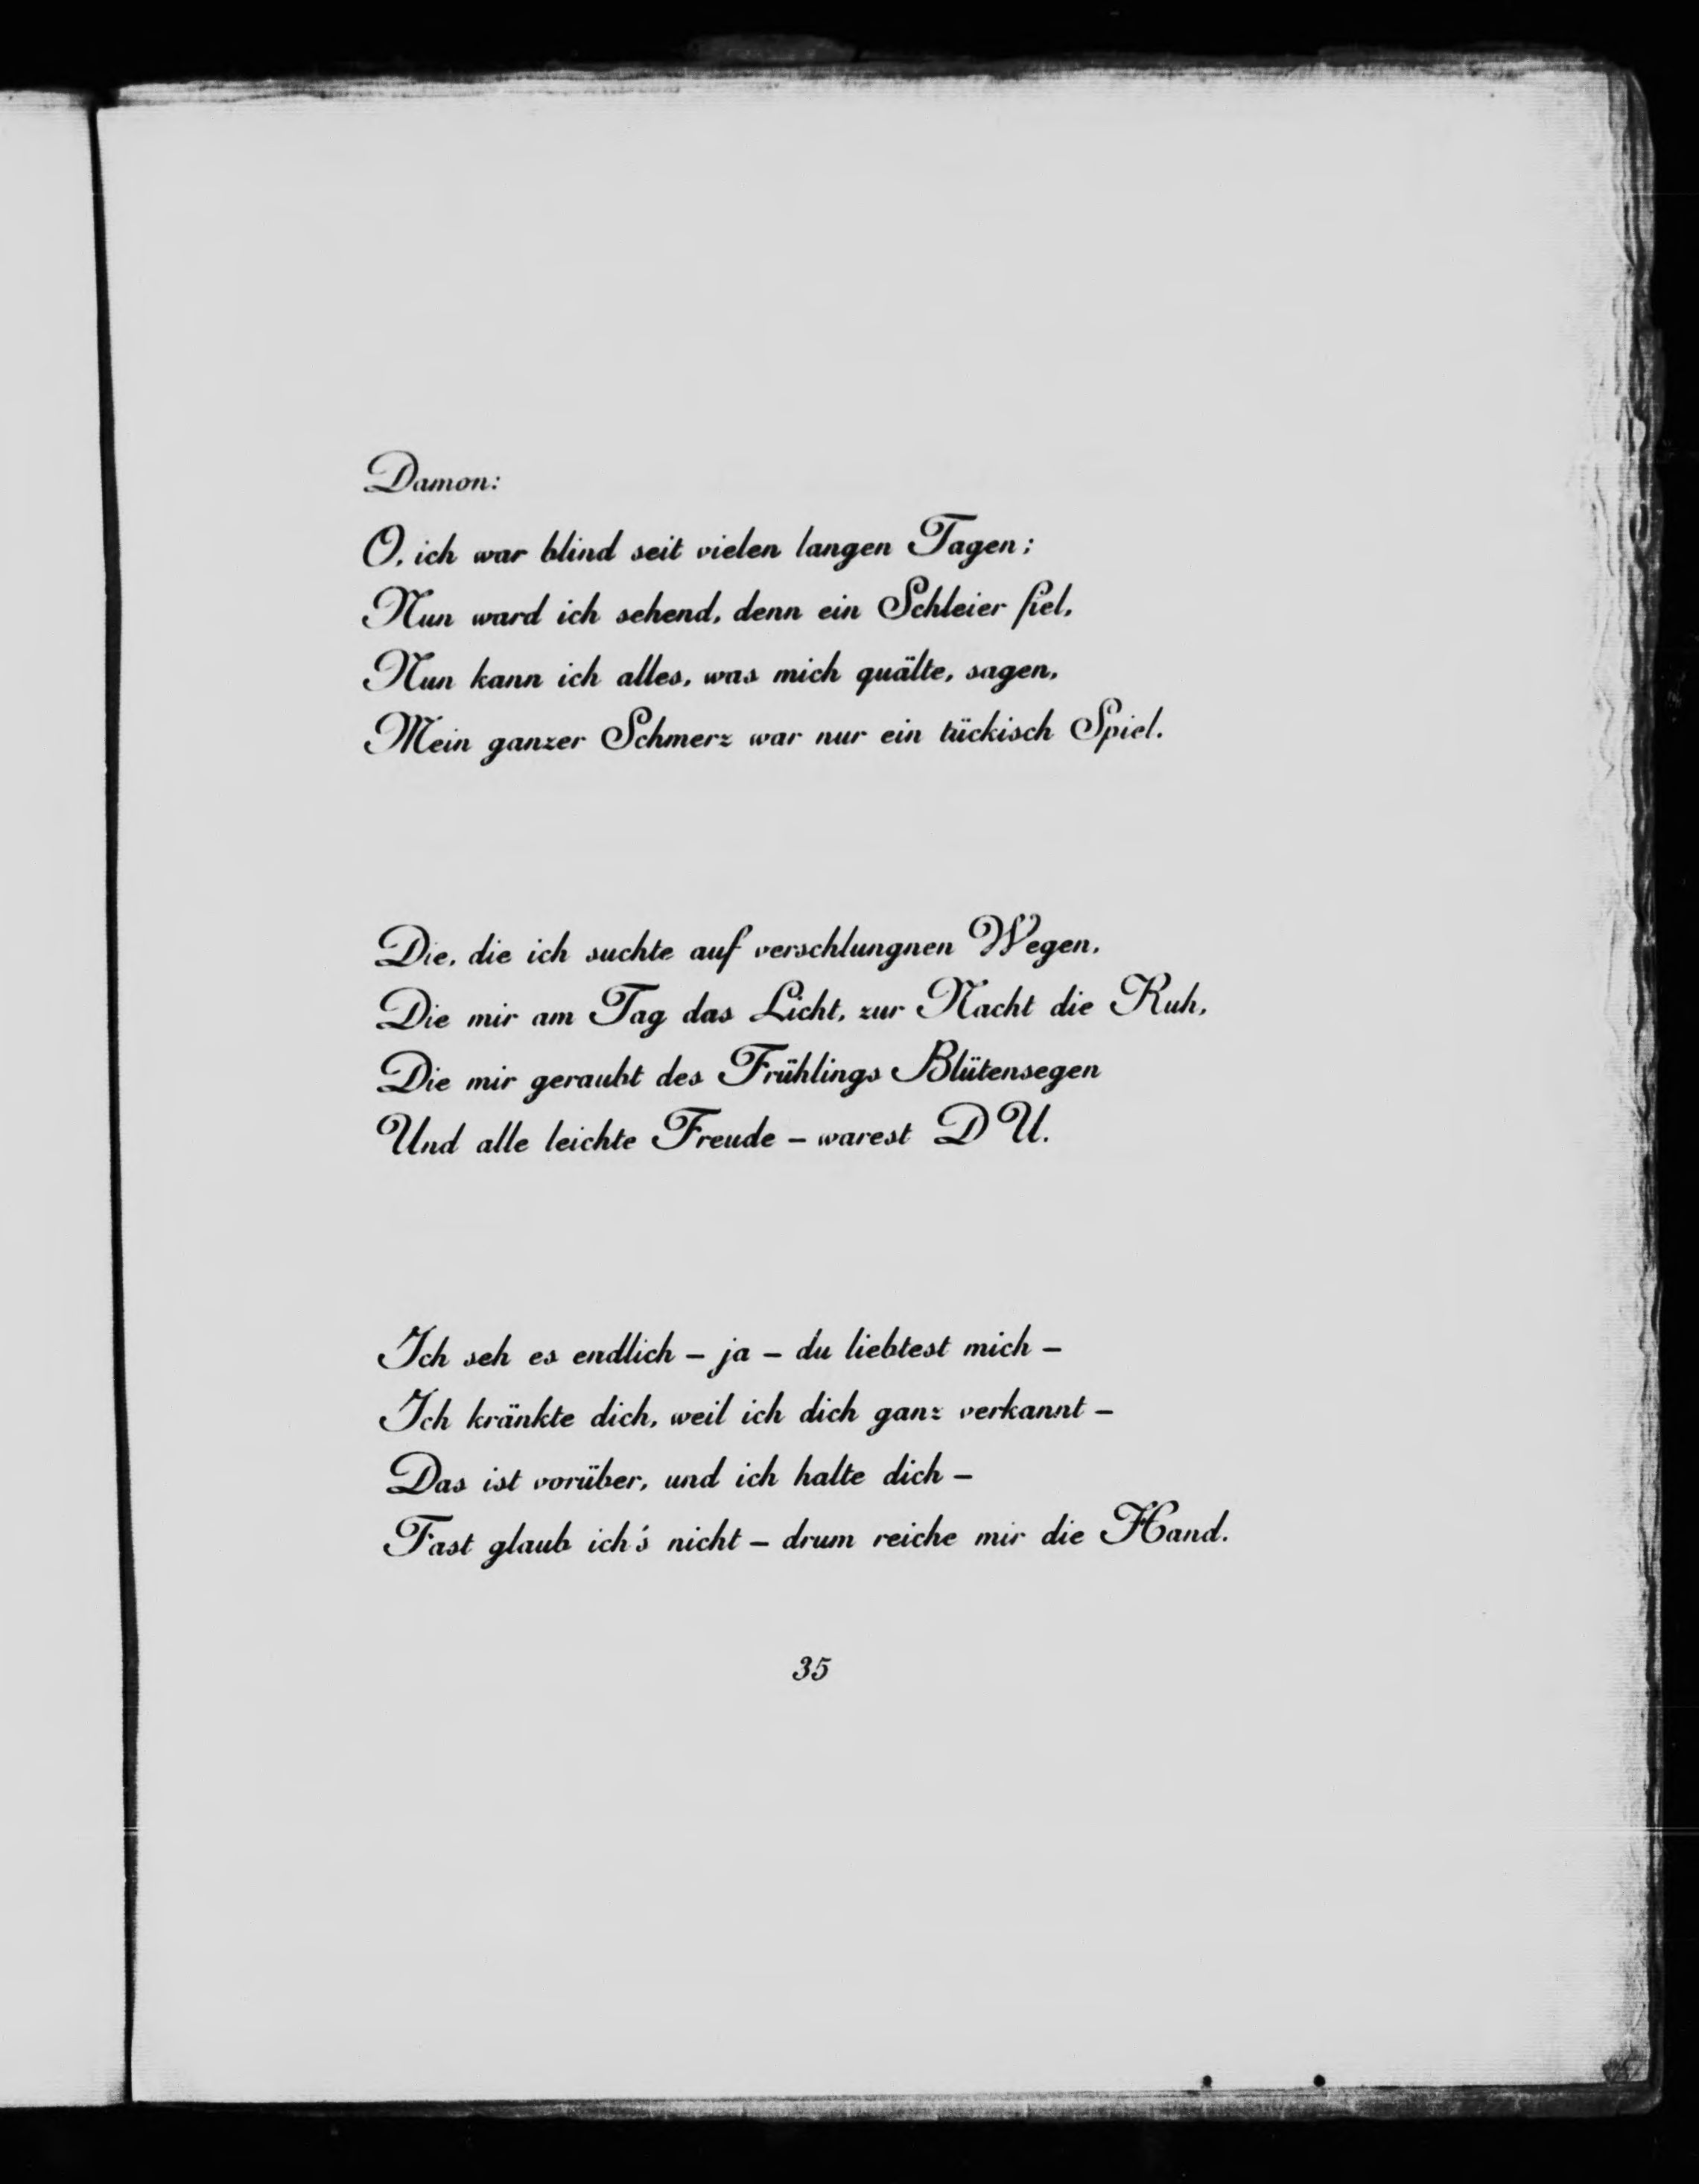 Damon:
O, ich war blind seit vielen langen Tagen;
Nun ward ich sehend, denn ein Schleier fiel,
Nun kann ich alles, was mich quälte, sagen,
Mein ganzer Schmerz war nur ein tückisch Spiel.
Die, die ich suchte auf verschlungnen Wegen,
Die mir am Tag das Licht, zur Nacht die Ruh,
Die mir geraubt des Frühlings Blütensegen
Und alle leichte Freude – warest DU.
Ich seh es endlich – ja – du liebtest mich –
Ich kränkte dich, weil ich dich ganz verkannt –
Das ist vorüber, und ich halte dich –
Fast glaub ich's nicht – drum reiche mir die Hand.
35